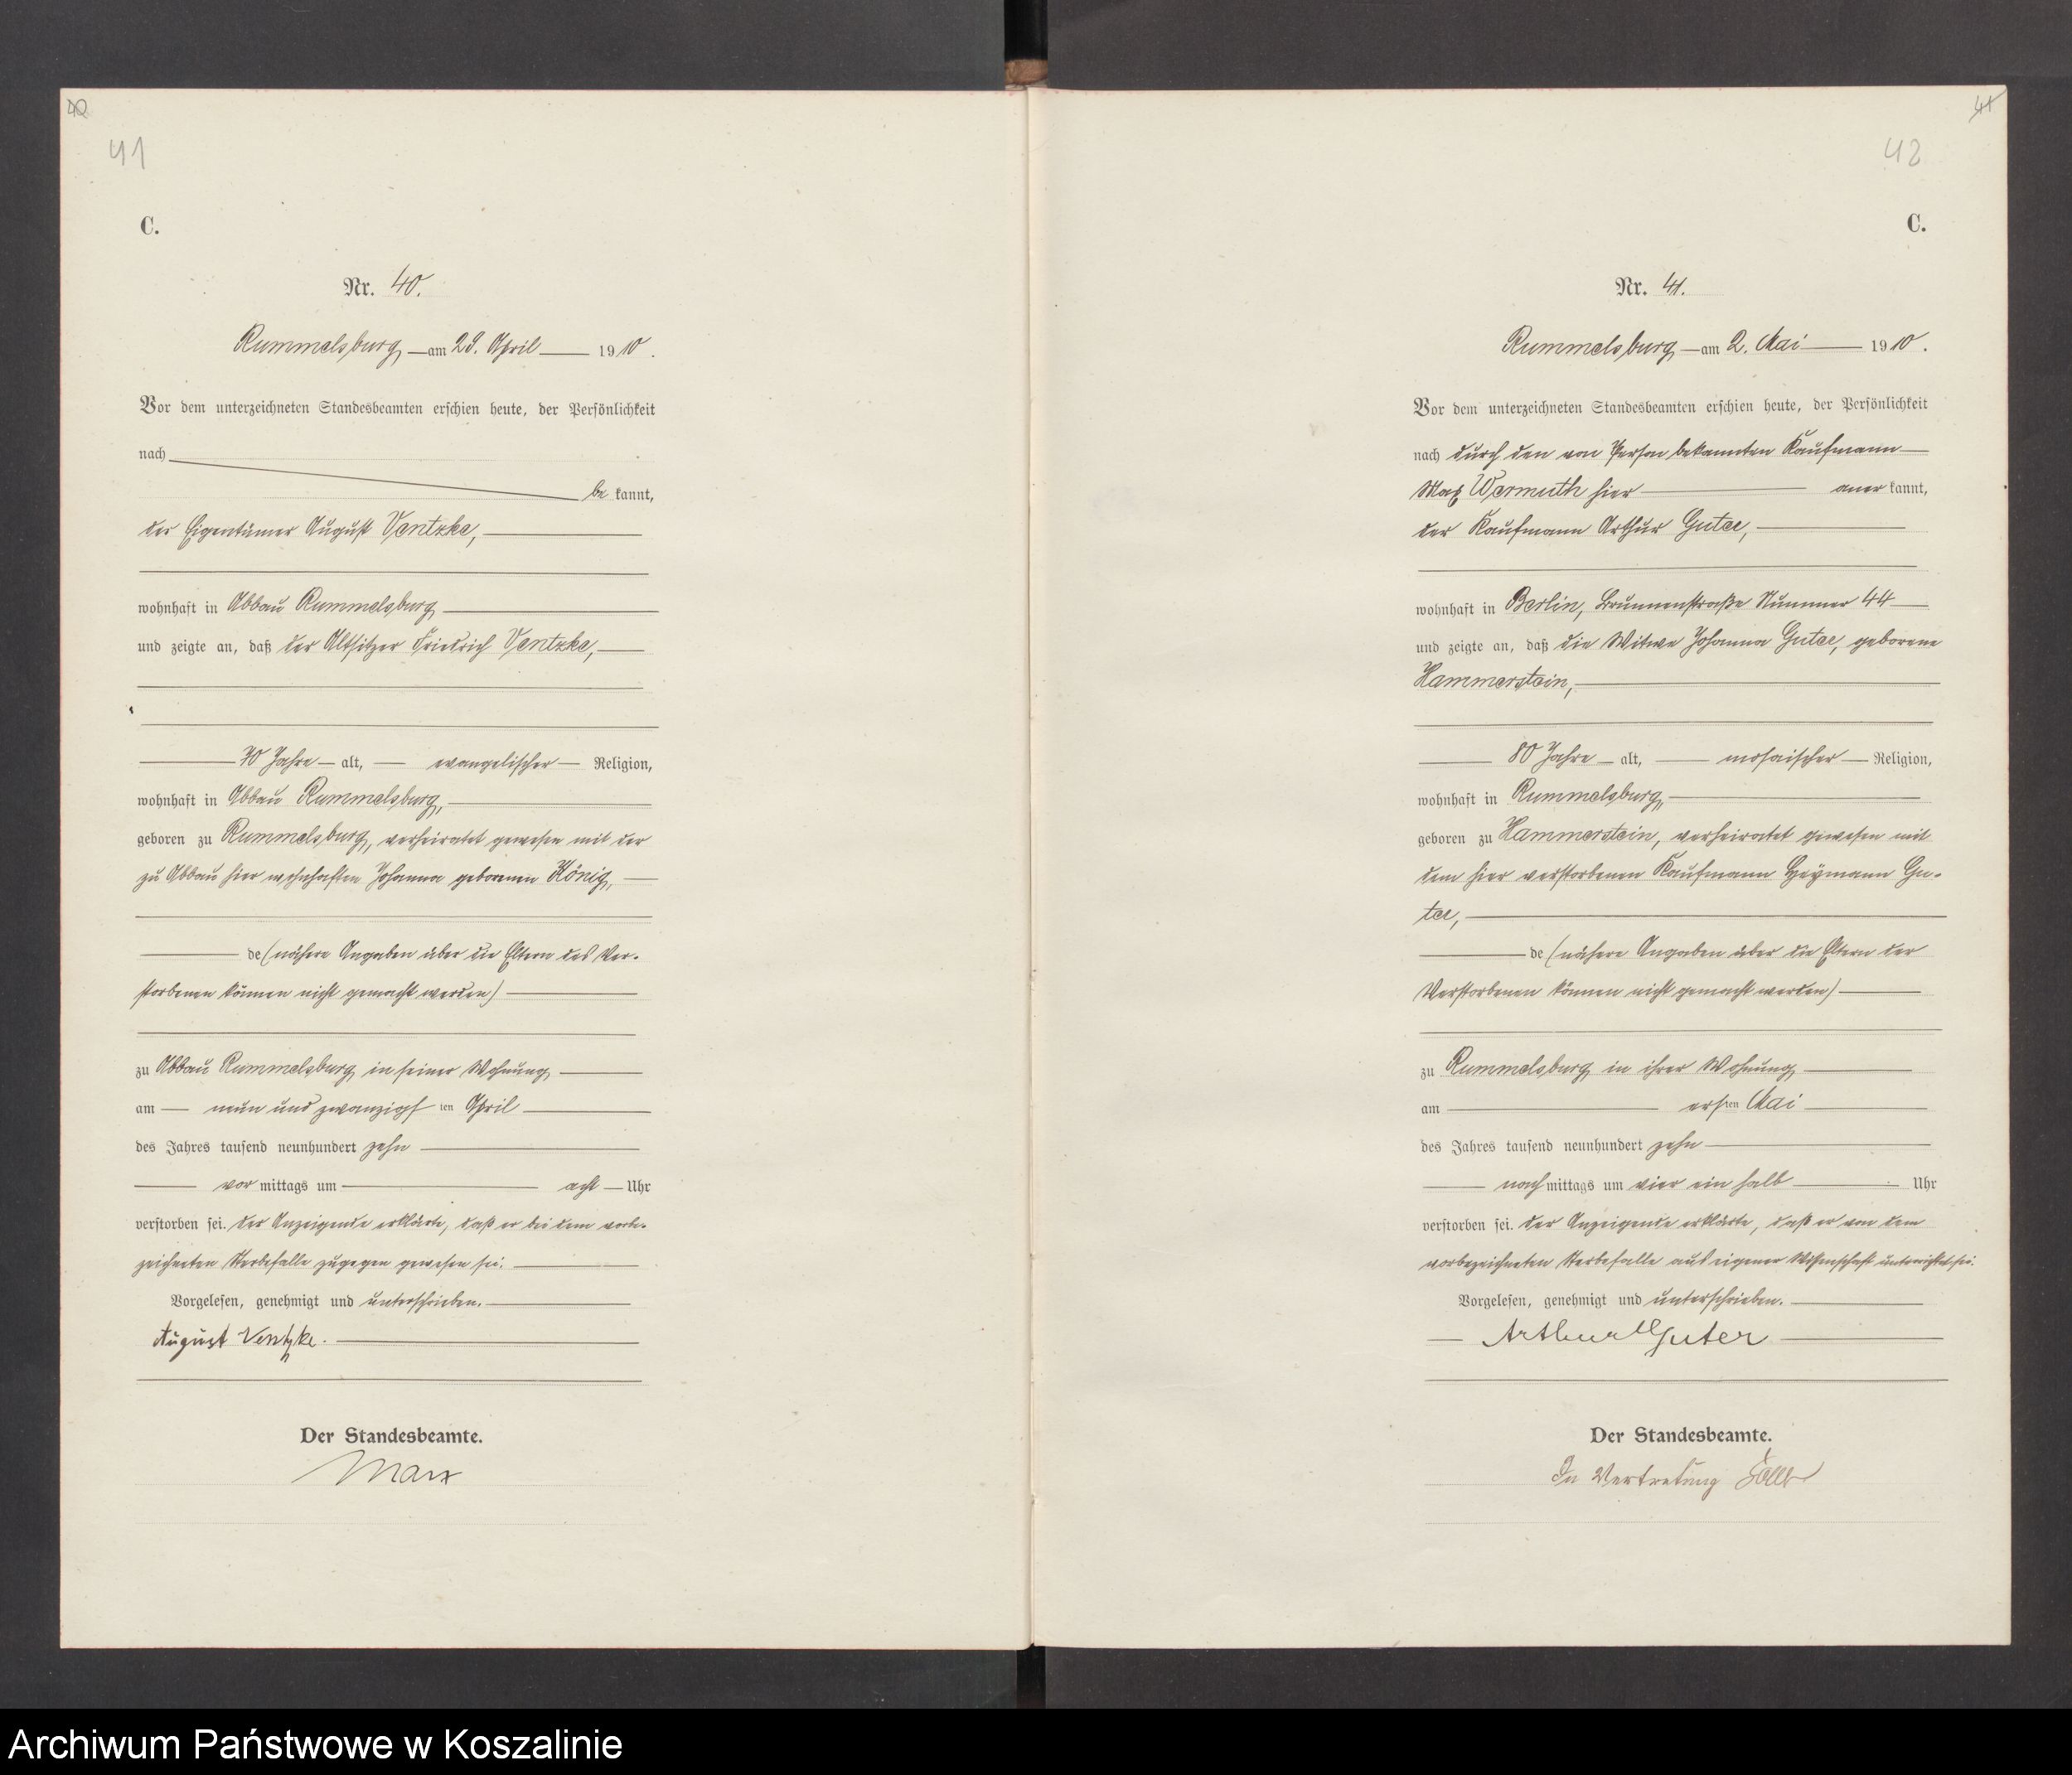 40
41
C.
Nr. 40.
Rummelsburg, am 29. April 1910.
Vor dem unterzeichneten Standesbeamten erschien heute, der Persönlichkeit
nach
be kannt,
der Eigentümer August Ventzke,
wohnhaft in Abbau Rummelsburg
und zeigte an, daß der Altsitzer Friedrich Ventzke,
70 Jahre alt, evangelischer Religion,
wohnhaft in Abbau Rummelsburg,
geboren zu Rummelsburg, verheiratet gewesen mit der
zu Abbau hier wohnhaften Johanna geborenen König,
de (nähere Angaben über die Eltern des Ver-
storbenen können nicht gemacht werden)
zu Abbau Rummelsburg in seiner Wohnung
am neun und zwanzigsten April
des Jahres tausend neunhundert zehn
vor mittags um acht Uhr
verstorben sei. Der Anzeigende erklärte, daß er bei dem vorbe-
zeichneten Sterbefalle zugegen gewesen sei.
Vorgelesen, genehmigt und unterschrieben.
August Ventzke.
Der Standesbeamte.
Marx
41
42
C.
Nr. 41.
Rummelsburg, am 2. Mai 1910.
Vor dem unterzeichneten Standesbeamten erschien heute, der Persönlichkeit
nach durch den von Person bekannten Kaufmann
Max Wermuth hier aner kannt,
der Kaufmann Arthur Guter,
wohnhaft in Berlin, Brunnenstraße Nummer 44
und zeigte an, daß die Witwe Johanna Guter, geborene
Hammerstein,
80 Jahre alt, mosaischer Religion,
wohnhaft in Rummelsburg,
geboren zu Hammerstein, verheiratet gewesen mit
dem hier verstorbenen Kaufmann Heymann Gu-
ter,
de (nähere Angaben über die Eltern der
Verstorbenen können nicht gemacht werden)
zu Rummelsburg in ihrer Wohnung
am ersten Mai
des Jahres tausend neunhundert zehn
nach mittags um vier ein halb Uhr
verstorben sei. Der Anzeigende erklärte, daß er von dem
vorbezeichneten Sterbefalle aus eigener Wissenschaft unterrichtet sei.
Vorgelesen, genehmigt und unterschrieben.
Arthur Guter
Der Standesbeamte.
In Vertretung
Archiwum Państwowe w Koszalinie